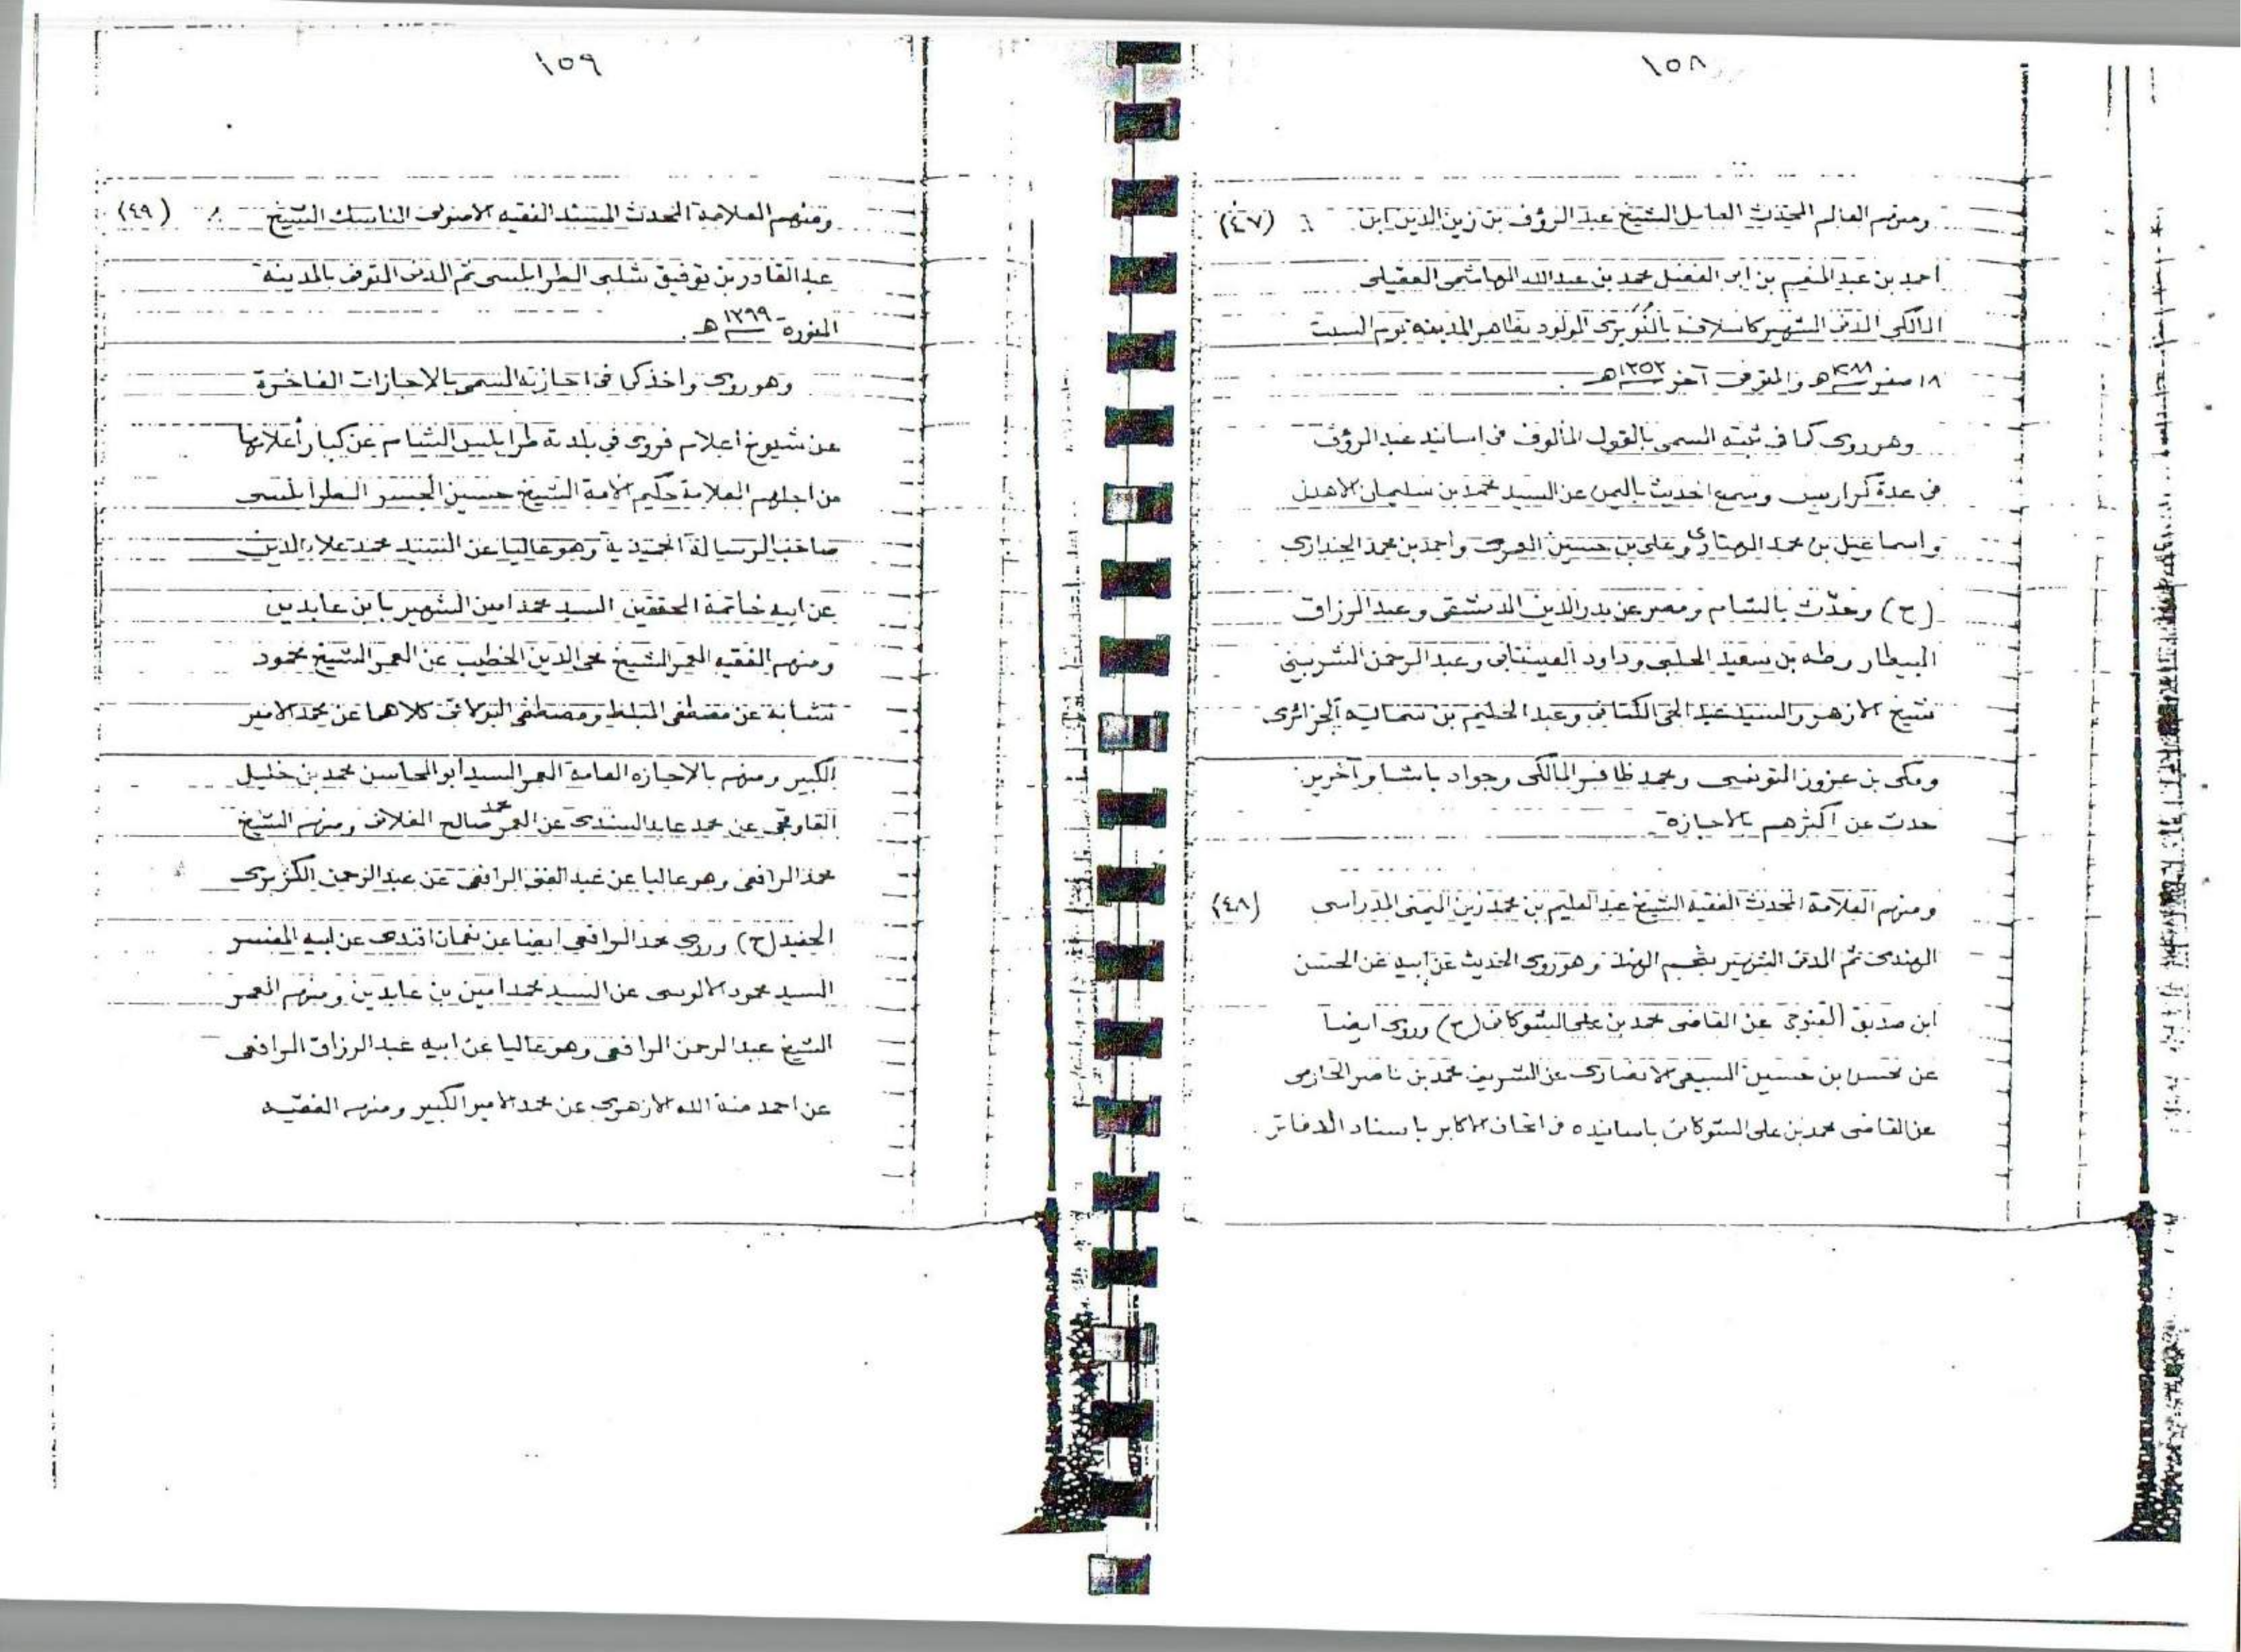 ١٥٨
(٤٧) ومنهم العالم المحدث العامل الشيخ عبد الرؤف بن زين الدين ابن
احمد بن عبد المنعم بن ابى الفضل محمد بن عبدالله الهاشمى العقيلى
المالكى المدنى الشهير كاسلافه بالنُّوَيرى المولود بظاهر المدينة يوم السبت
١٨ صفر هـ والمتوفى آخر ١٣٥٢هـ.
وهو روى كما فى ثبته السمى بالقول المألوف فى اسانيد عبد الرؤف
فى عدة كراريس وسمع الحديث باليمن عن السيد محمد بن سليمان الاهدل
واسماعيل بن محمد وعلى بن حسين العمرى واحمد بن محمد الجندارى
(ح) وحدّث بالشام ومصر عن بدر الدين الدمشقى وعبد الرزاق
البيطار وطه بن سعيد الحلبى وداود العينتابى وعبد الرحمن الشربينى
شيخ الازهر والسيد عبد الحى الكتانى وعبد الحليم بن سماية الجزائرى
ومكى بن عزوز التونسى ومحمد ظافر المالكى وجواد باشا وآخرين
حدث عن أكثرهم بالاجازة
(٤٨) ومنهم العلامة المحدث الفقيه الشيخ عبد العليم بن محمد زين اليمنى المدراسى
الهندى ثم المدنى الشهير بنجم الهند وهو روى الحديث عن ابيه عن الحسن
ابن صديق القنوجى عن القاضى محمد بن على الشوكانى (ح) وروى ايضا
عن محسن بن حسين السبيعى الانصارى عن الشريف محمد بن ناصر الحازمى
عن القاضى محمد بن على الشوكانى باسانيده فى اتحاف الاكابر باسناد الدفاتر.
١٥٩
(٤٩) ومنهم العلامة المحدث المسند الفقيه الاصولى الناسك الشيخ
عبد القادر بن توفيق شلبى الطرابلسى ثم المدنى المتوفى بالمدينة
المنورة هـ.
وهو روى واخذ كما فى اجازته السمى بالاجازات الفاخرة
عن شيوخ اعلام فروى فى بلدته طرابلس الشام عن كبار أعلامها
من اجلهم العلامة حكيم الامة الشيخ حسين الجسر الطرابلسى
صاحب الرسالة الحميدية وهو عاليا عن السيد محمد علاء الدين
عن ابيه خاتمة المحققين السيد محمد امين الشهير بابن عابدين
ومنهم الفقيه المعمر الشيخ محى الدين الخطيب عن المعمر الشيخ محمود
نشابة عن مصطفى المبلط ومصطفى البولاقى كلاهما عن محمد الامير
الكبير ومنهم بالاجازه العامة المعمر السيد أبو المحاسن محمد بن خليل
القاوقجى عن محمد عابد السندى عن المعمر محمد صالح الفلانى ومنهم الشيخ
محمد الرافعى وهو عاليا عن عبد الغنى الرافعى عن عبد الرحمن الكزبرى
الحفيد (ح) وروى محمد الرافعى ايضا عن نعمان افندى عن ابيه المفسر
السيد محمود الالوسى عن السيد محمد امين بن عابدين ومنهم المعمر
الشيخ عبد الرحمن الرافعى وهو عاليا عن ابيه عبد الرزاق الرافعى
عن احمد منة الله الازهرى عن محمد الامير الكبير ومنهم الفقيه